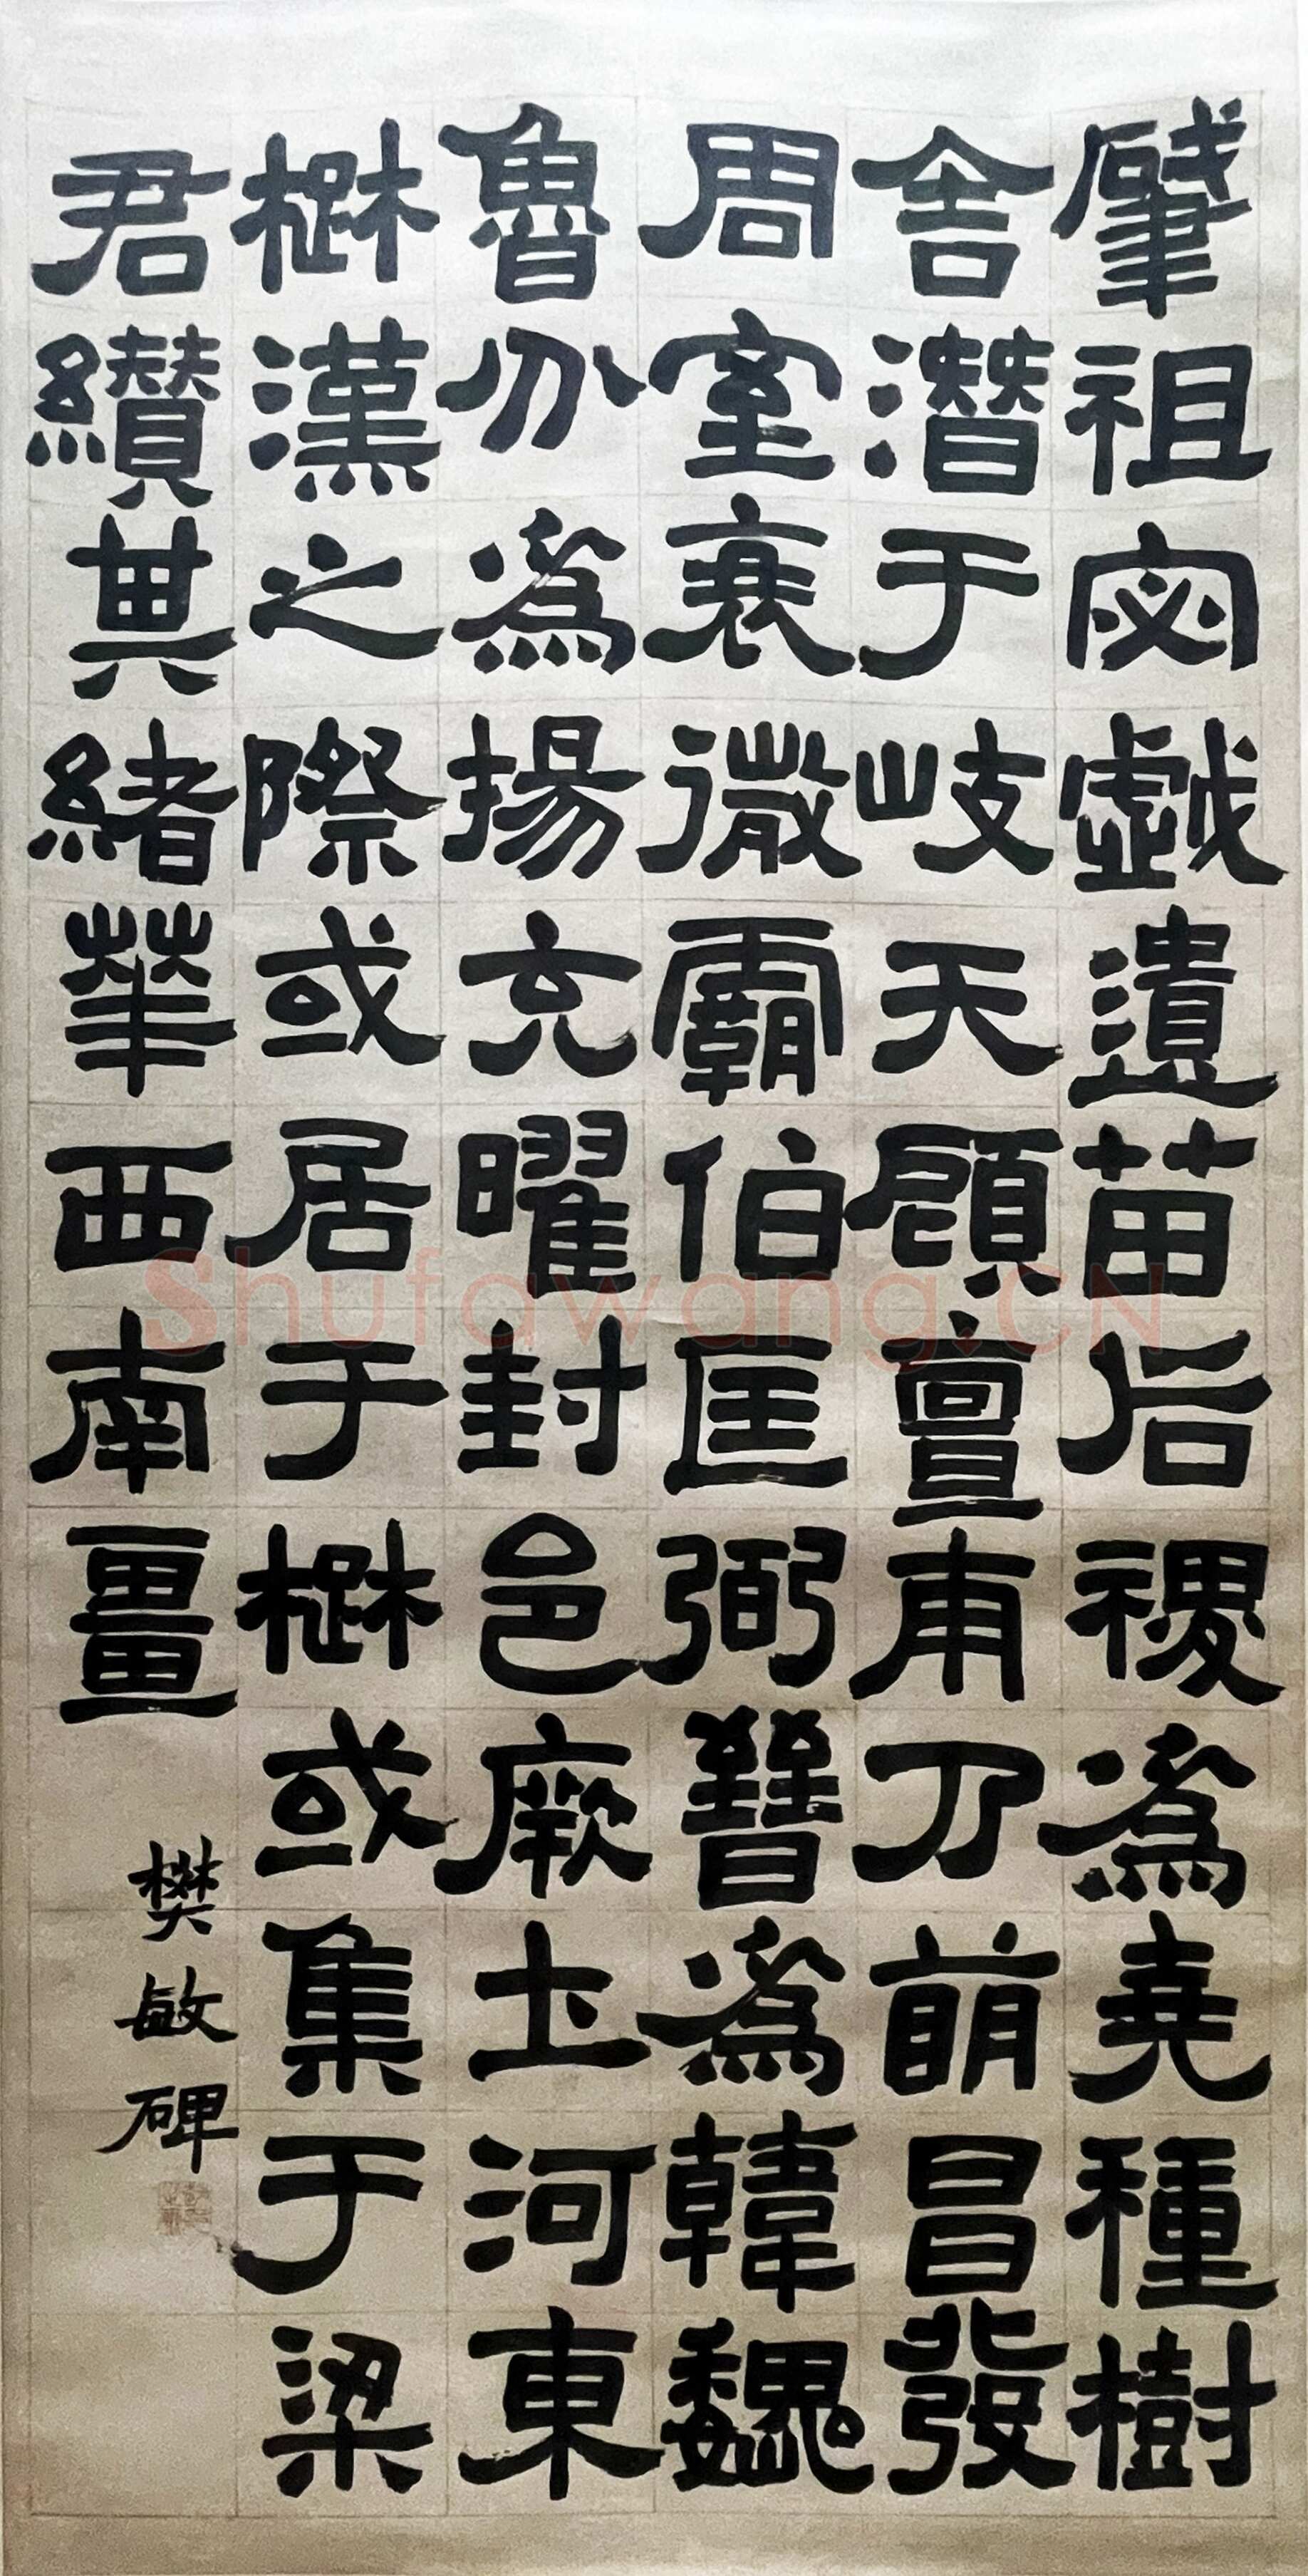 肇祖宓戲遺苗后稷為堯種樹
舍潛于岐天顧亶甫乃萌昌發
周室衰微霸伯匡弼晉為韓魏
魯分為揚充曜封邑厥土河東
楚漢之際或居于楚或集于梁
君纘其緒華西南畺
樊敏碑
Shufawang.CN